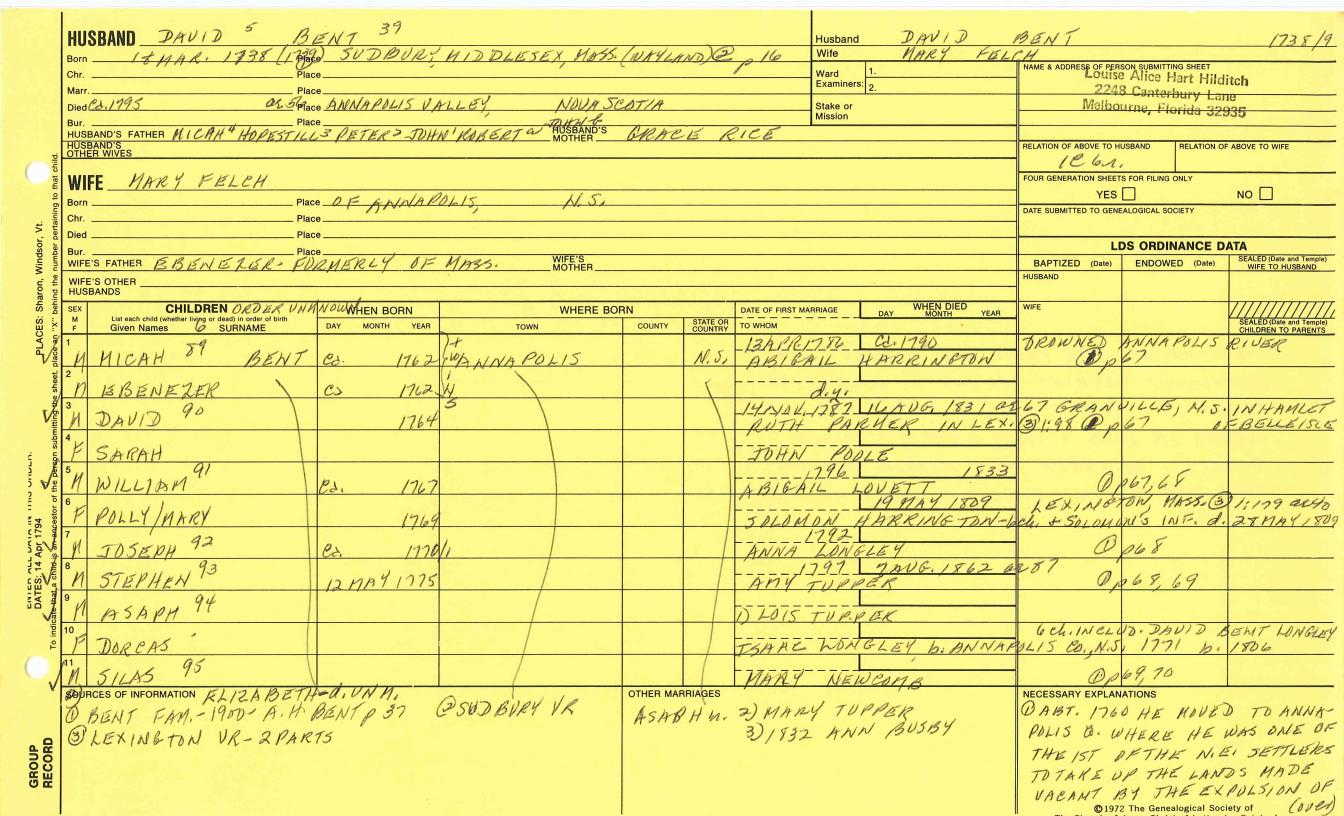 HUSBAND DAVID 5 BENT 39
Born 18 MAR. 1738 (1739) Place ① SUDBURY, MIDDLESEX, MASS. (WAYLAND) ② p 16
Chr. Place
Marr. Place
Died Ca. 1795 ae 56 Place ANNAPOLIS VALLEY, NOVA SCOTIA
Bur. Place
HUSBAND'S FATHER MICAH 4 HOPESTILL 3 PETER 2 JOHN 1 ROBERT a JOHN b HUSBAND'S MOTHER GRACE RICE
HUSBAND'S OTHER WIVES
Husband DAVID BENT 1738/9
Wife MARY FELCH
Ward Examiners: 1.
2.
Stake or Mission
NAME & ADDRESS OF PERSON SUBMITTING SHEET
Louise Alice Hart Hilditch
2248 Canterbury Lane
Melbourne, Florida 32935
RELATION OF ABOVE TO HUSBAND RELATION OF ABOVE TO WIFE
1C 6r.
FOUR GENERATION SHEETS FOR FILING ONLY
YES NO
DATE SUBMITTED TO GENEALOGICAL SOCIETY
WIFE MARY FELCH
Born Place OF ANNAPOLIS, N.S.
Chr. Place
Died Place
Bur. Place
WIFE'S FATHER EBENEZER - FORMERLY OF MASS. WIFE'S MOTHER
WIFE'S OTHER HUSBANDS
LDS ORDINANCE DATA
BAPTIZED (Date) ENDOWED (Date) SEALED (Date and Temple) WIFE TO HUSBAND
HUSBAND
WIFE
SEALED (Date and Temple) CHILDREN TO PARENTS
SEX M F CHILDREN ORDER UNKNOWN WHEN BORN WHERE BORN DATE OF FIRST MARRIAGE WHEN DIED
List each child (whether living or dead) in order of birth
Given Names 6 SURNAME DAY MONTH YEAR TOWN COUNTY STATE OR COUNTRY TO WHOM DAY MONTH YEAR
1 M MICAH 89 BENT Ca. 1762 TWINS ANNAPOLIS N.S. 13 APR 1786 Ca. 1790 DROWNED ANNAPOLIS RIVER
ABIGAIL HARRINGTON ① p 67
2 M EBENEZER Ca 1762 d.y.
3 M DAVID 90 1764 14 NOV. 1787 16 AUG. 1831 ae 67 GRANVILLE, N.S. IN HAMLET OF BELLEISLE
RUTH PARKER IN LEX. ③ 1:98 ① p 67
4 F SARAH JOHN POOLE
5 M WILLIAM 91 Ca. 1767 1796 1833
ABIGAIL LOVETT ① p 67, 68
6 F POLLY/MARY 1769 19 MAY 1809 LEXINGTON, MASS. ③ 1:179 ae 40
SOLOMON HARRINGTON - 6 ch. & SOLOMON'S INF. d. 28 MAY 1809
7 M JOSEPH 92 Ca. 1770/1 1792
ANNA LONGLEY ① p 68
8 M STEPHEN 93 12 MAY 1775 1797 7 AUG. 1862 ae 87
AMY TUPPER ① p 68, 69
9 M ASAPH 94 1) LOIS TUPPER
10 F DORCAS 6 ch. INCLUD. DAVID BENT LONGLEY
ISAAC LONGLEY b. ANNAPOLIS CO., N.S. 1771 b. 1806
11 M SILAS 95 MARY NEWCOMB ① p 69, 70
SOURCES OF INFORMATION ELIZABETH - d. UNM.
① BENT FAM. - 1900 - A.H. BENT p 37 ② SUDBURY VR
③ LEXINGTON VR - 2 PARTS
OTHER MARRIAGES
ASAPH m. 2) MARY TUPPER
3) 1832 ANN BUSBY
NECESSARY EXPLANATIONS
① ABT. 1760 HE MOVED TO ANNA-
POLIS Co. WHERE HE WAS ONE OF
THE 1ST OF THE N.E. SETTLERS
TO TAKE UP THE LANDS MADE
VACANT BY THE EXPULSION OF
(over)
©1972 The Genealogical Society of
PLACES: Sharon, Windsor, Vt.
DATES: 14 Apr 1794
To indicate that a child is an ancestor of the person submitting the sheet, place an "X" behind the number pertaining to that child.
GROUP RECORD